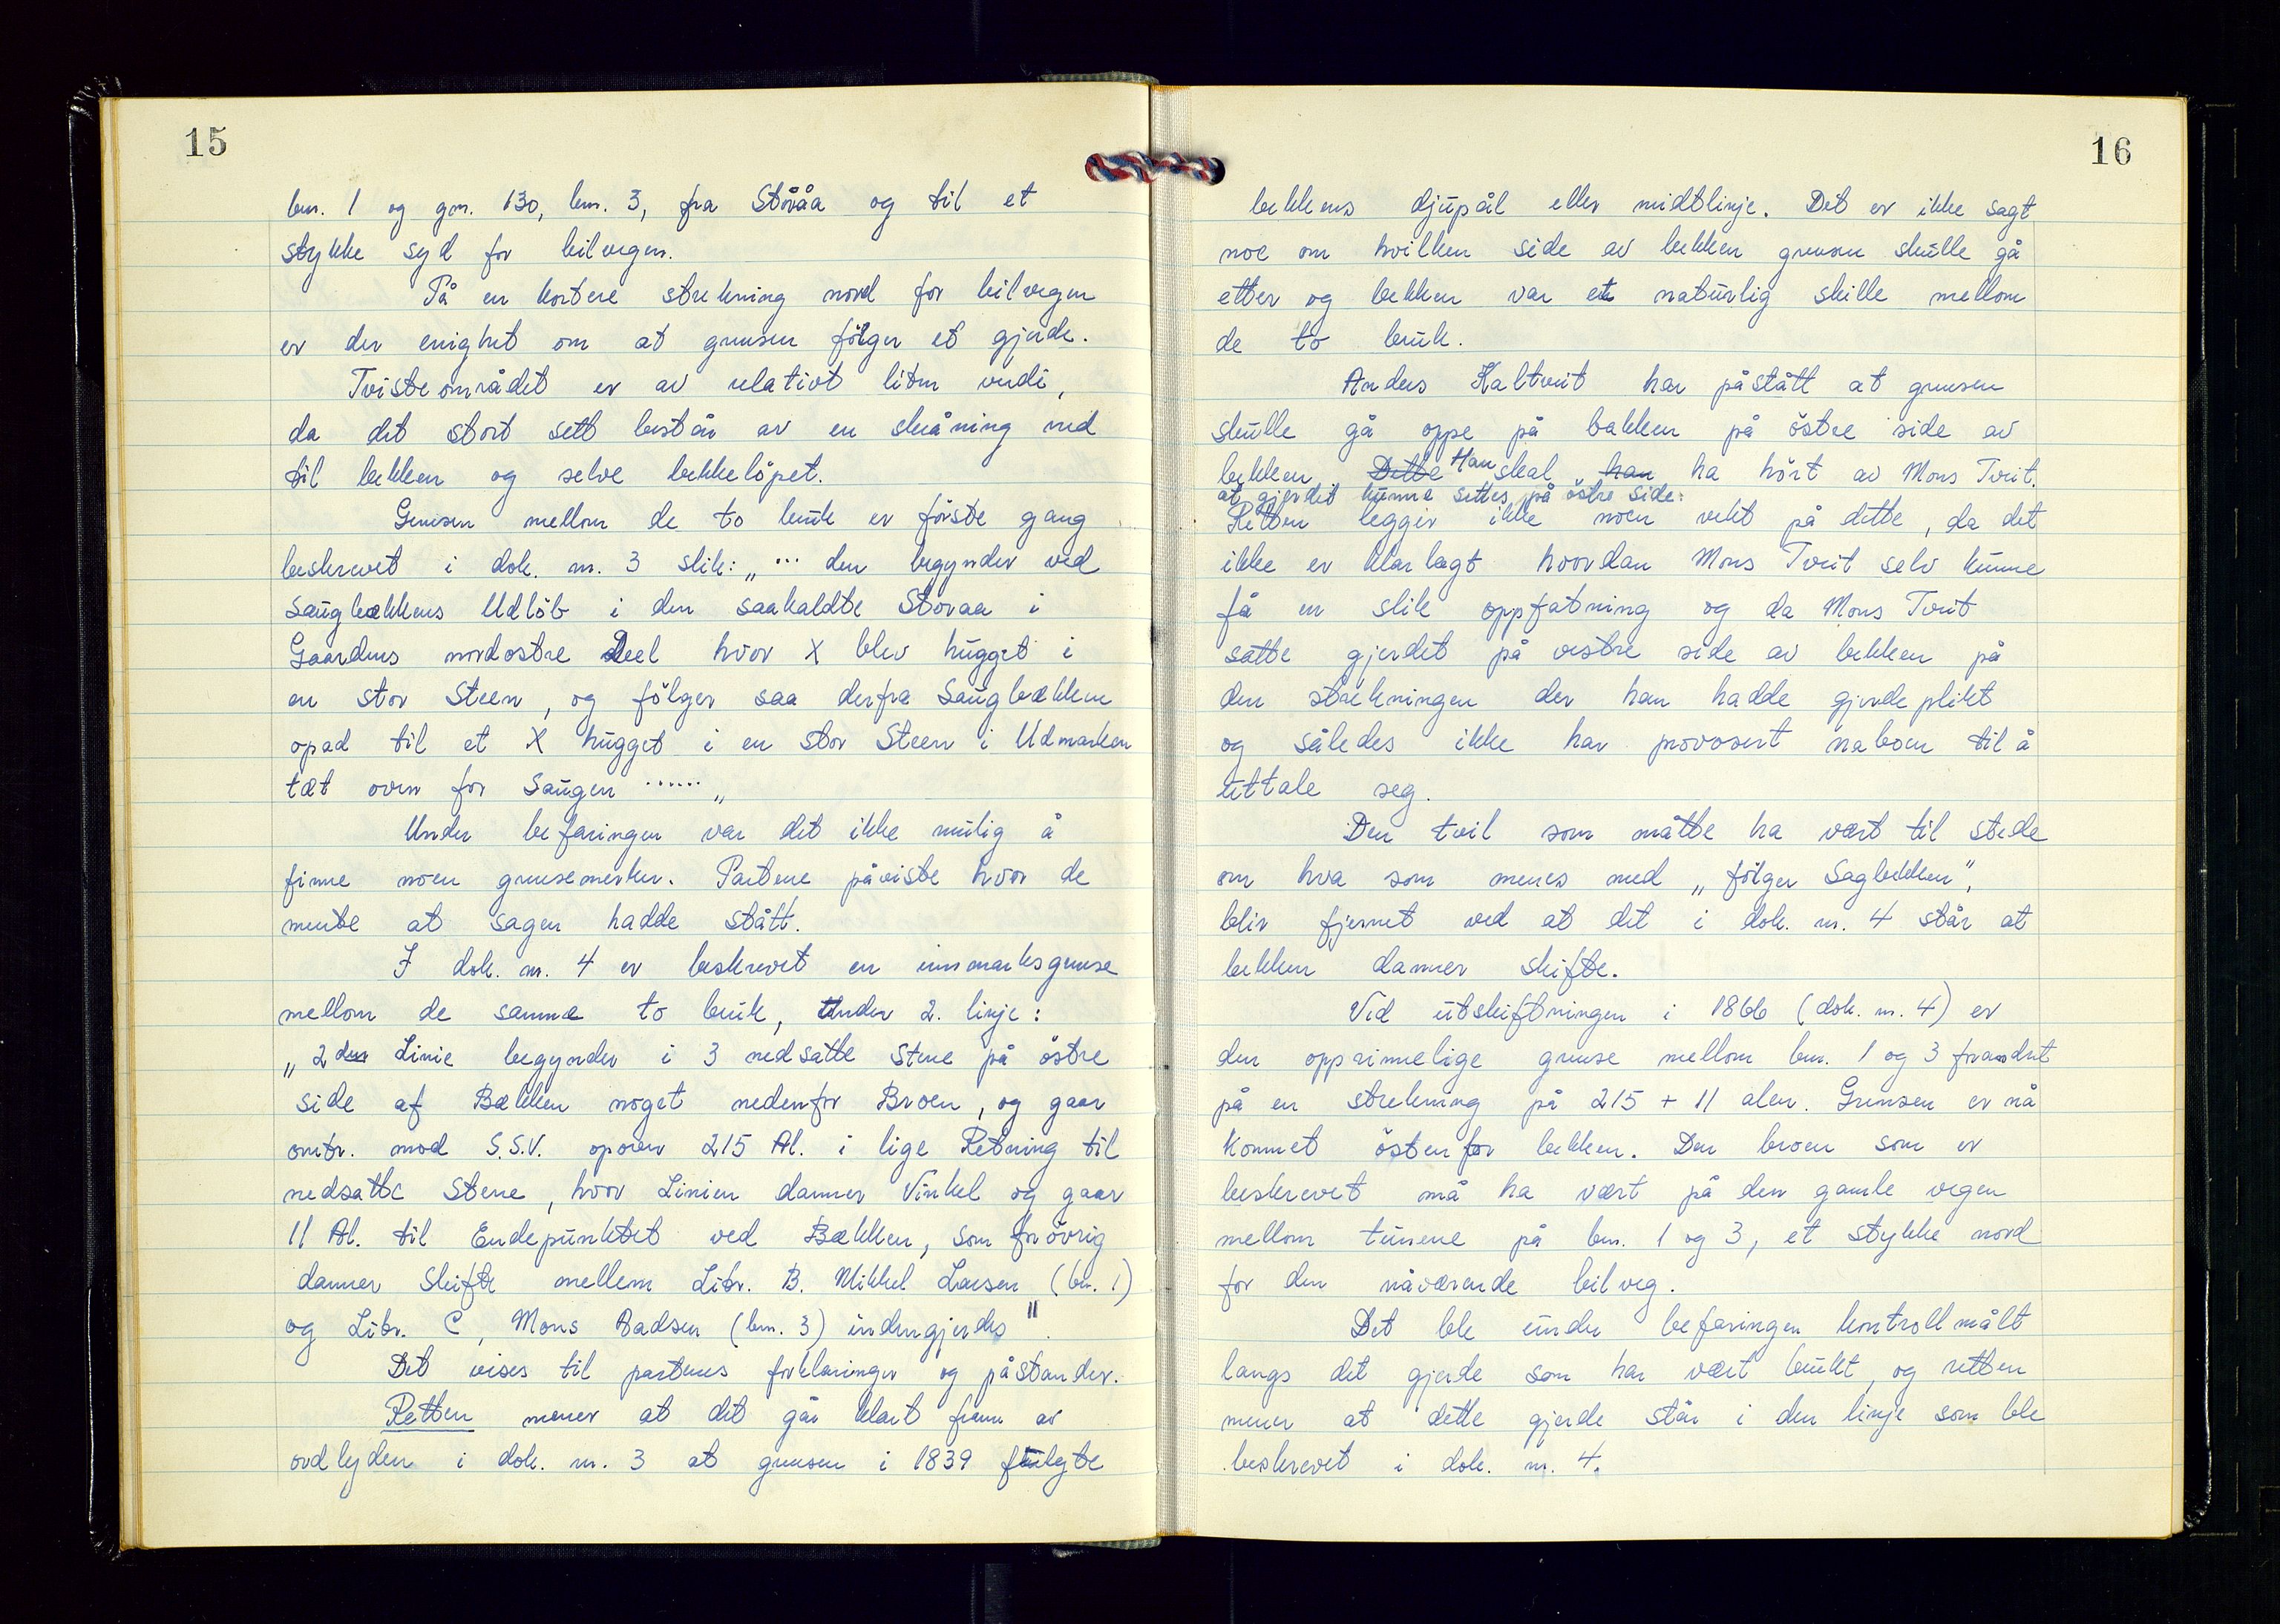 15
bnr. 1 og gnr. 130, bnr. 3, fra Storåa og til et
stykke syd for bilvegen.
På en kortere strekning nord for bilvegen
er der enighet om at grensen følger et gjerde.
Tvisteområdet er av relativt liten verdi,
da det stort sett består av en skråning ned
til bekken og selve bekkeløpet.
Grensen mellom de to bruk er første gang
beskrevet i dok. nr. 3 slik: „ ... den begynder ved
Saugbækkens Udløb i den saakaldte Storaa i
Gaardens nordostre Deel hvor X blev hugget i
en stor Steen, og følger saa derfra Saugbækken
opad til et X hugget i en stor Steen i Udmarken
tæt oven for Saugen ...... „
Under befaringen var det ikke mulig å
finne noen grensemerker. Partene påviste hvor de
mente at sagen hadde stått.
I dok. nr. 4 er beskrevet en innmarksgrense
mellom de samme to bruk, under 2. linje:
„ 2den Linie begynder i 3 nedsatte Stene på östre
side af Bækken noget nedenfor Broen, og gaar
omtr. mod S.S.V. opover 215 Al. i lige Retning til
nedsatte Stene, hvor Linien danner Vinkel og gaar
11 Al. til Endepunktet ved Bækken, som forövrig
danner Skifte mellem Litr. B. Mikkel Larsen (bn. 1)
og Litr. C, Mons Badsen (bnr. 3) indengjerdes".
Det vises til partenes forklaringer og påstander.
Retten mener at det går klart fram av
ordlyden i dok. nr. 3 at grensen i 1839 fulgte
16
bekkens djupål eller midtlinje. Det er ikke sagt
noe om hvilken side av bekken grensen skulle gå
etter og bekken var et naturlig skille mellom
de to bruk.
Anders Kaltveit har påstått at grensen
skulle gå oppe på bakken på östre side av
bekken. Dette Han skal han ha hört av Mons Tveit.
at gjerdet kunne settes på östre side.
Retten legger ikke noen vekt på dette, da det
ikke er klarlagt hvordan Mons Tveit selv kunne
få en slik oppfatning og da Mons Tveit
satte gjerdet på vestre side av bekken på
den strekningen der han hadde gjerdeplikt
og således ikke har provosert naboen til å
uttale seg.
Den tvil som måtte ha vært til stede
om hva som menes med „ følger Sagbekken",
blir fjernet ved at det i dok. nr. 4 står at
bekken danner skifte.
Ved utskiftningen i 1866 (dok. nr. 4) er
den opprinnelige grense mellom bnr. 1 og 3 forandret
på en strekning på 215 + 11 alen. Grensen er nå
kommet östenfor bekken. Den broen som er
beskrevet må ha vært på den gamle vegen
mellom tunene på bnr. 1 og 3, et stykke nord
for den nåværende bilveg.
Det ble under befaringen kontrollmålt
langs det gjerde som har vært brukt, og retten
mener at dette gjerde står i den linje som ble
beskrevet i dok. nr. 4.